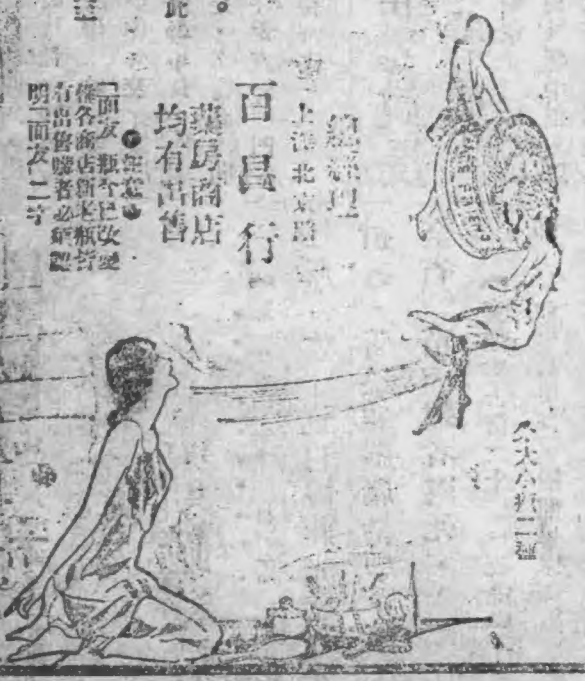 分大小瓶二種
總經理
上海北京路
百昌行
藥房商店
均有出售
注意
「面友」瓶今已改變
惟各商店新老瓶皆
有出售購者必須認
明「面友」二字
此